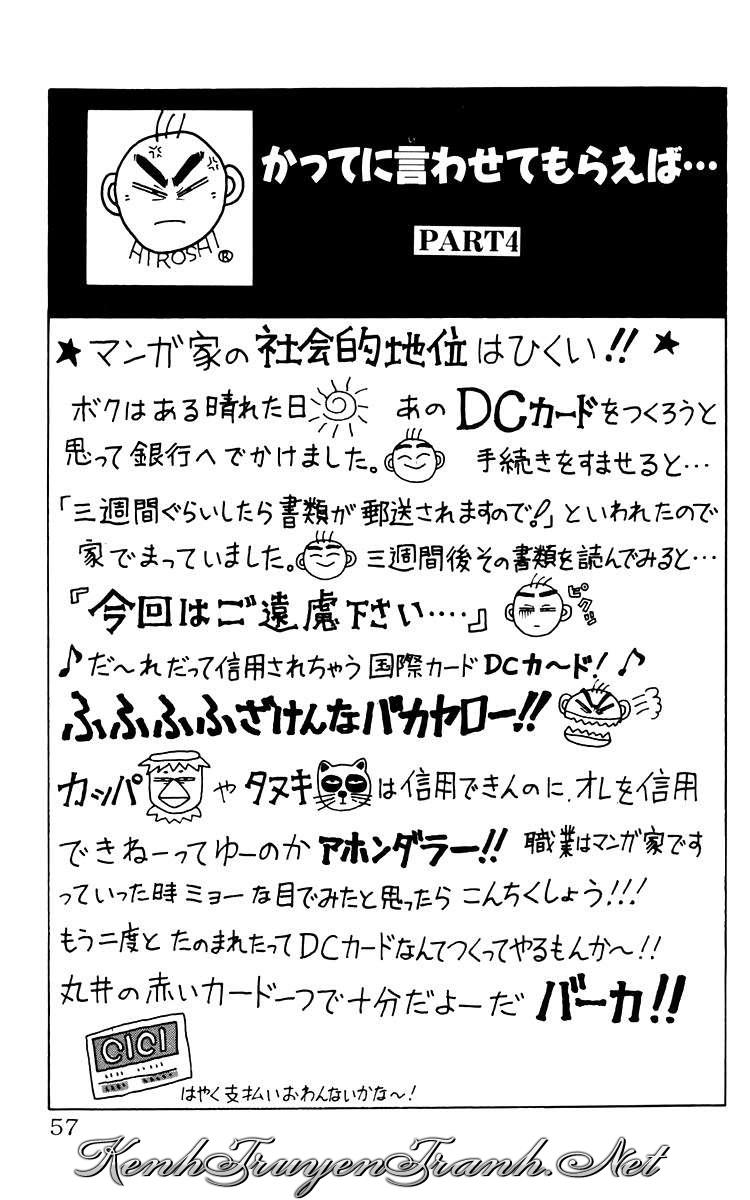 かってに言わせてもらえば…
い
PART4
HIROSHI ®
★マンガ家の社会的地位はひくい!!★
ボクはある晴れた日 あのDCカードをつくろうと
思って銀行へでかけました。 手続きをすませると…
「三週間ぐらいしたら書類が郵送されますので!」といわれたので
家でまっていました。 三週間後その書類を読んでみると…
『今回はご遠慮下さい‥‥』 ピクッ
♪だ〜れだって信用されちゃう国際カードDCカ〜ド!♪
ふふふふざけんなバカヤロー!!
カッパやタヌキは信用できんのに、オレを信用
できねーってゆーのかアホンダラー!! 職業はマンガ家です
っていった時ミョーな目でみたと思ったらこんちくしょう!!!
もう二度とたのまれたってDCカードなんてつくってやるもんか〜!!
丸井の赤いカード一つで十分だよーだ バーカ!!
OIOI
はやく支払いおわんないかな〜!
57
KenhTruyenTranh.Net